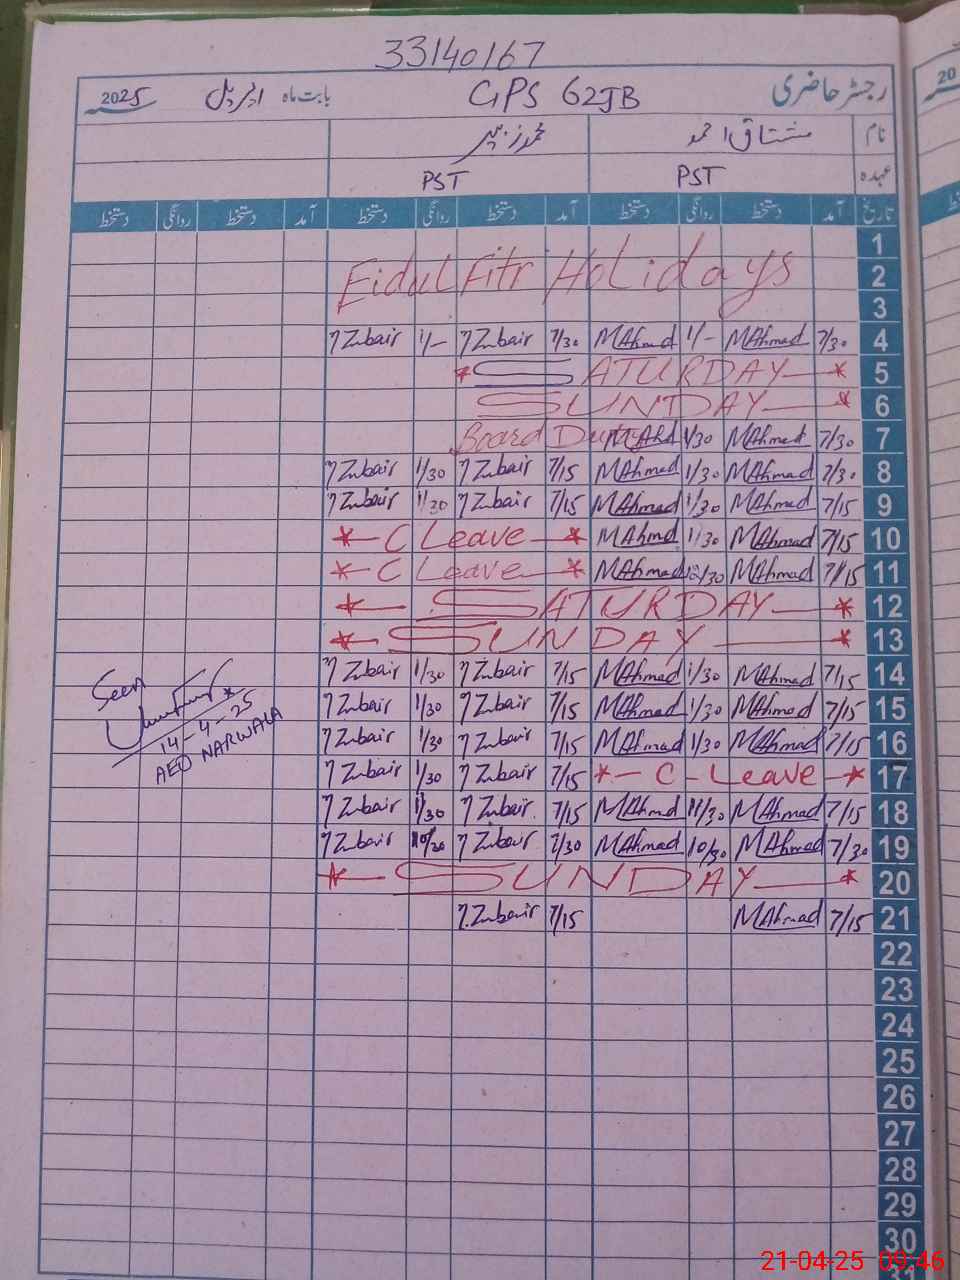 33140167
رجسٹر حاضری GPS 62JB بابت ماہ اپریل 2025
نام مشتاق احمد محمد زبیر
عہدہ PST PST
تاریخ آمد دستخط روانگی دستخط آمد دستخط روانگی دستخط آمد دستخط روانگی دستخط
1
Eidul Fitr Holidays 2
3
ηZubair 1/- ηZubair 7/30 MAhmad 1/- MAhmad 7/30 4
* SATURDAY * 5
SUNDAY * 6
Board Duty MAhd 1/30 MAhmad 7/30 7
ηZubair 1/30 ηZubair 7/15 MAhmad 1/30 MAhmad 7/30 8
ηZubair 1/30 ηZubair 7/15 MAhmad 1/30 MAhmad 7/15 9
* C Leave * MAhmd 1/30 MAhmad 7/15 10
* C Leave * MAhmad 12/30 MAhmad 7/15 11
* SATURDAY * 12
* SUNDAY * 13
ηZubair 1/30 ηZubair 7/15 MAhmad 1/30 MAhmad 7/15 14
ηZubair 1/30 ηZubair 7/15 MAhmad 1/30 MAhmad 7/15 15
ηZubair 1/30 ηZubair 7/15 MAhmad 1/30 MAhmad 7/15 16
ηZubair 1/30 ηZubair 7/15 * C - Leave * 17
ηZubair 11/30 ηZubair 7/15 MAhmd 11/30 MAhmad 7/15 18
ηZubair 10/30 ηZubair 7/30 MAhmad 10/30 MAhmad 7/30 19
* SUNDAY * 20
η.Zubair 7/15 MAhmad 7/15 21
22
23
24
25
26
27
28
29
30
Seen
14-4-25
AEO NARWALA
20
21-04-25 09:46